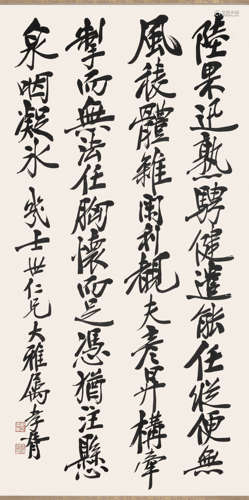 陸果迅熟騁健遣能任從便無
風稜體雖閑利觀夫彥昇構牽
掣而無法任胸懷而足憑猶注懸
泉咽凝冰 幾士世仁兄大雅屬 孝胥